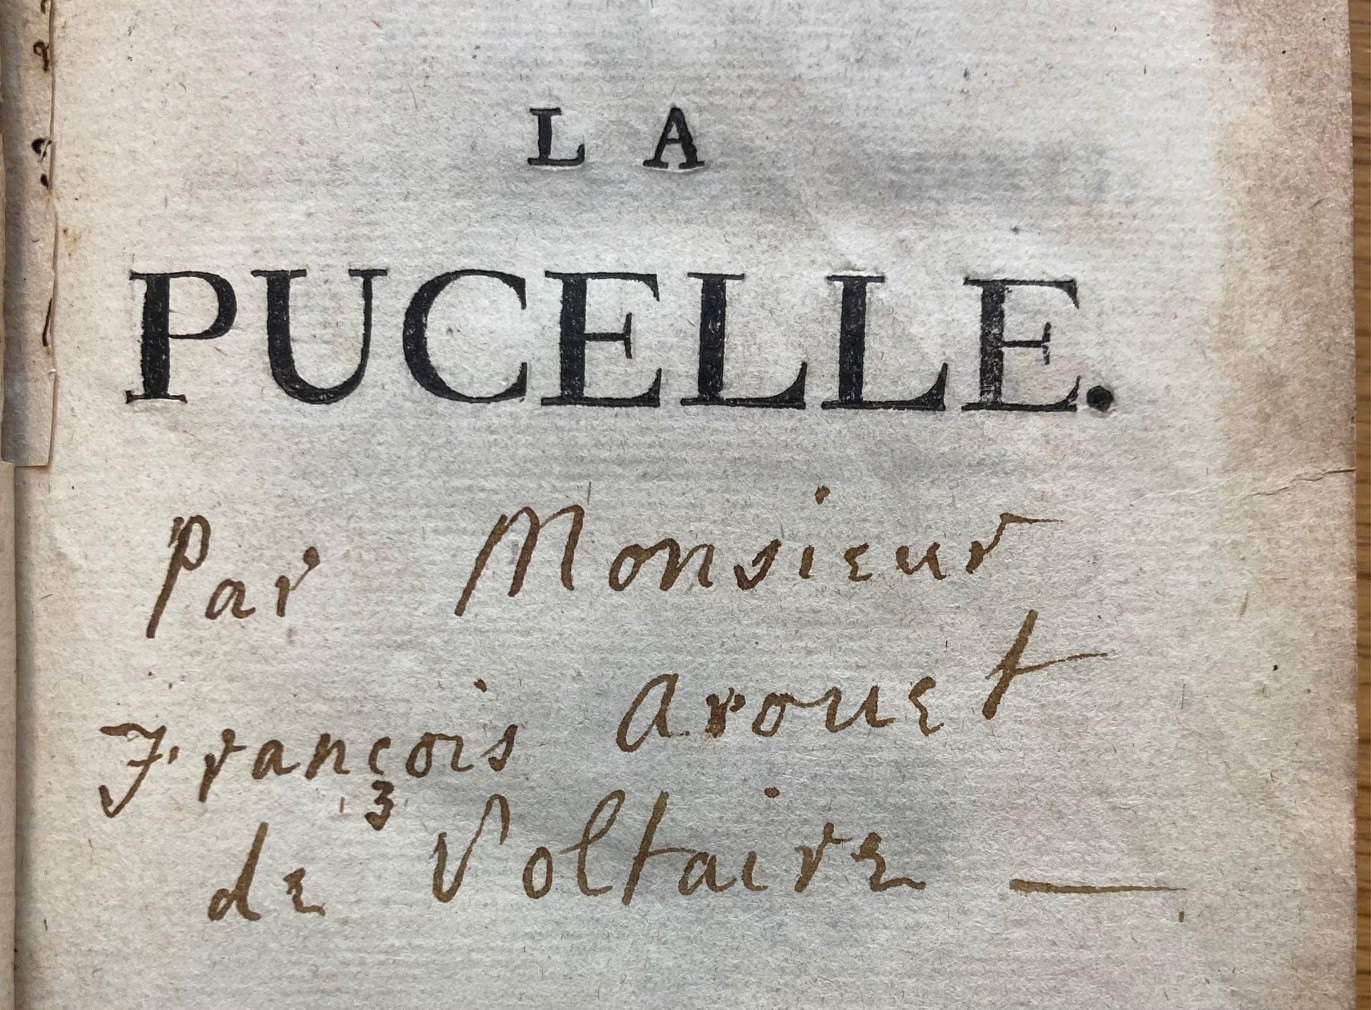 LA
PUCELLE.
Par Monsieur
François Arouet
de Voltaire —